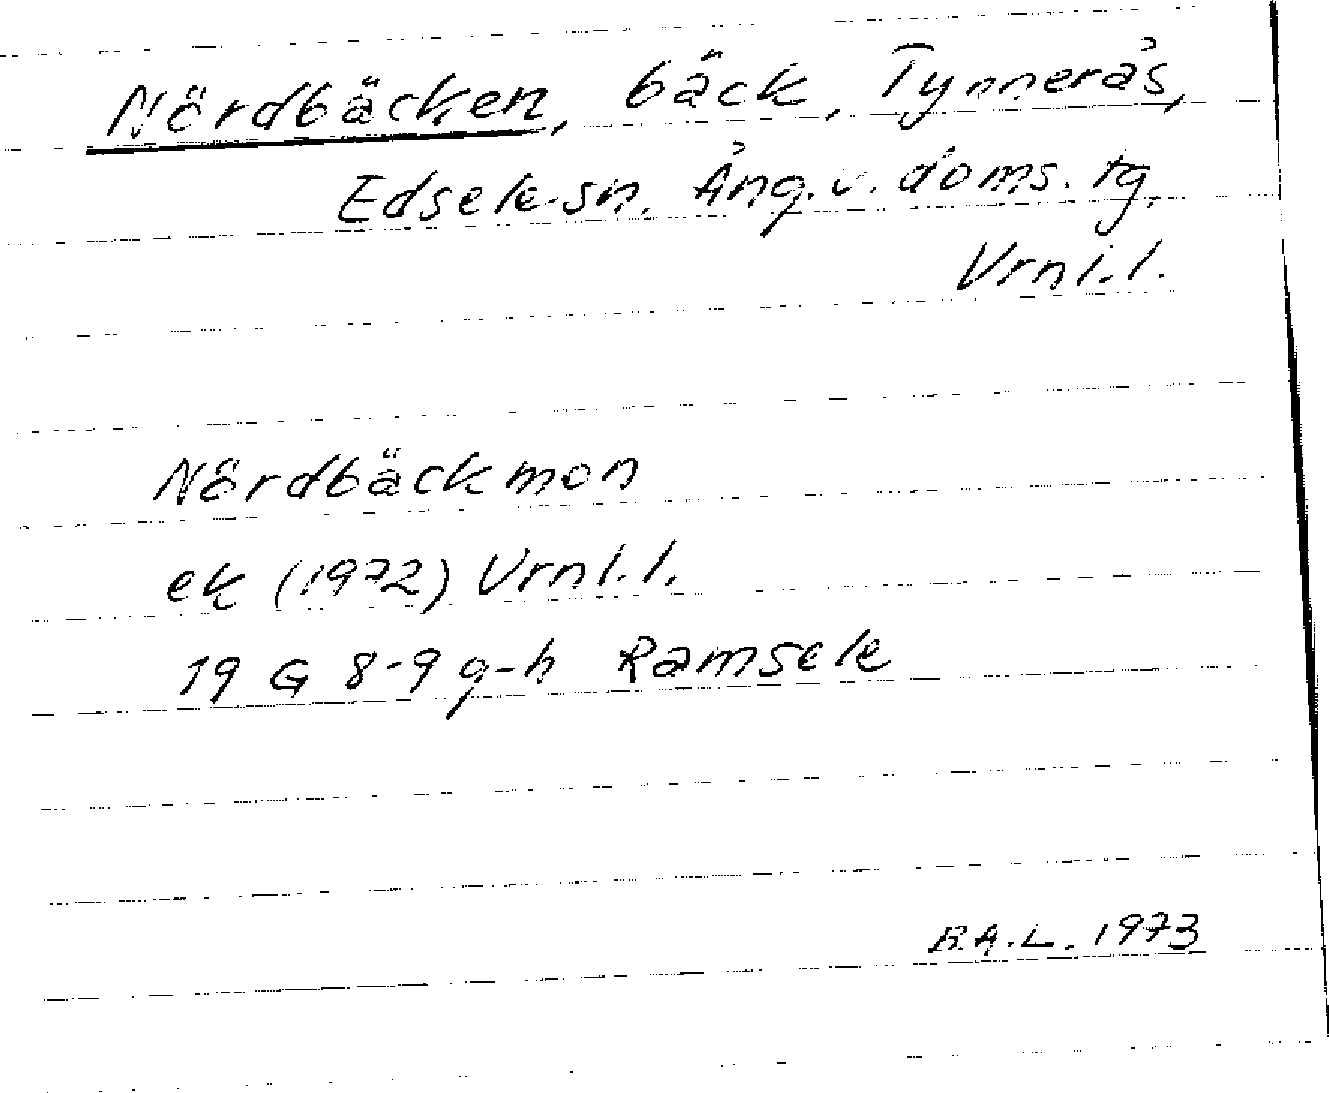 Nördbäcken, bäck, Tynnerås,
Edsele sn. Ång. v. doms. tg,
Vrnl.l.
Nördbäckmon
ek (1972) Vrnl.l.
19 G 8-9 g-h Ramsele
R.A.L. 1973